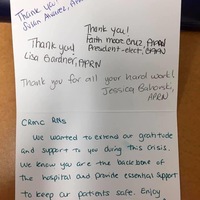 Thank you
Thank you!
Faith
President-elect,
Thank you!
Lisa Gardner, APRN
Thank you for all your hard work!
Jessica
APRN
CRMC RNs
We wanted to extend our gratitude
and support to you during this crisis.
We know you are the backbone of
the hospital and provide essential support
to keep our patients safe. Enjoy